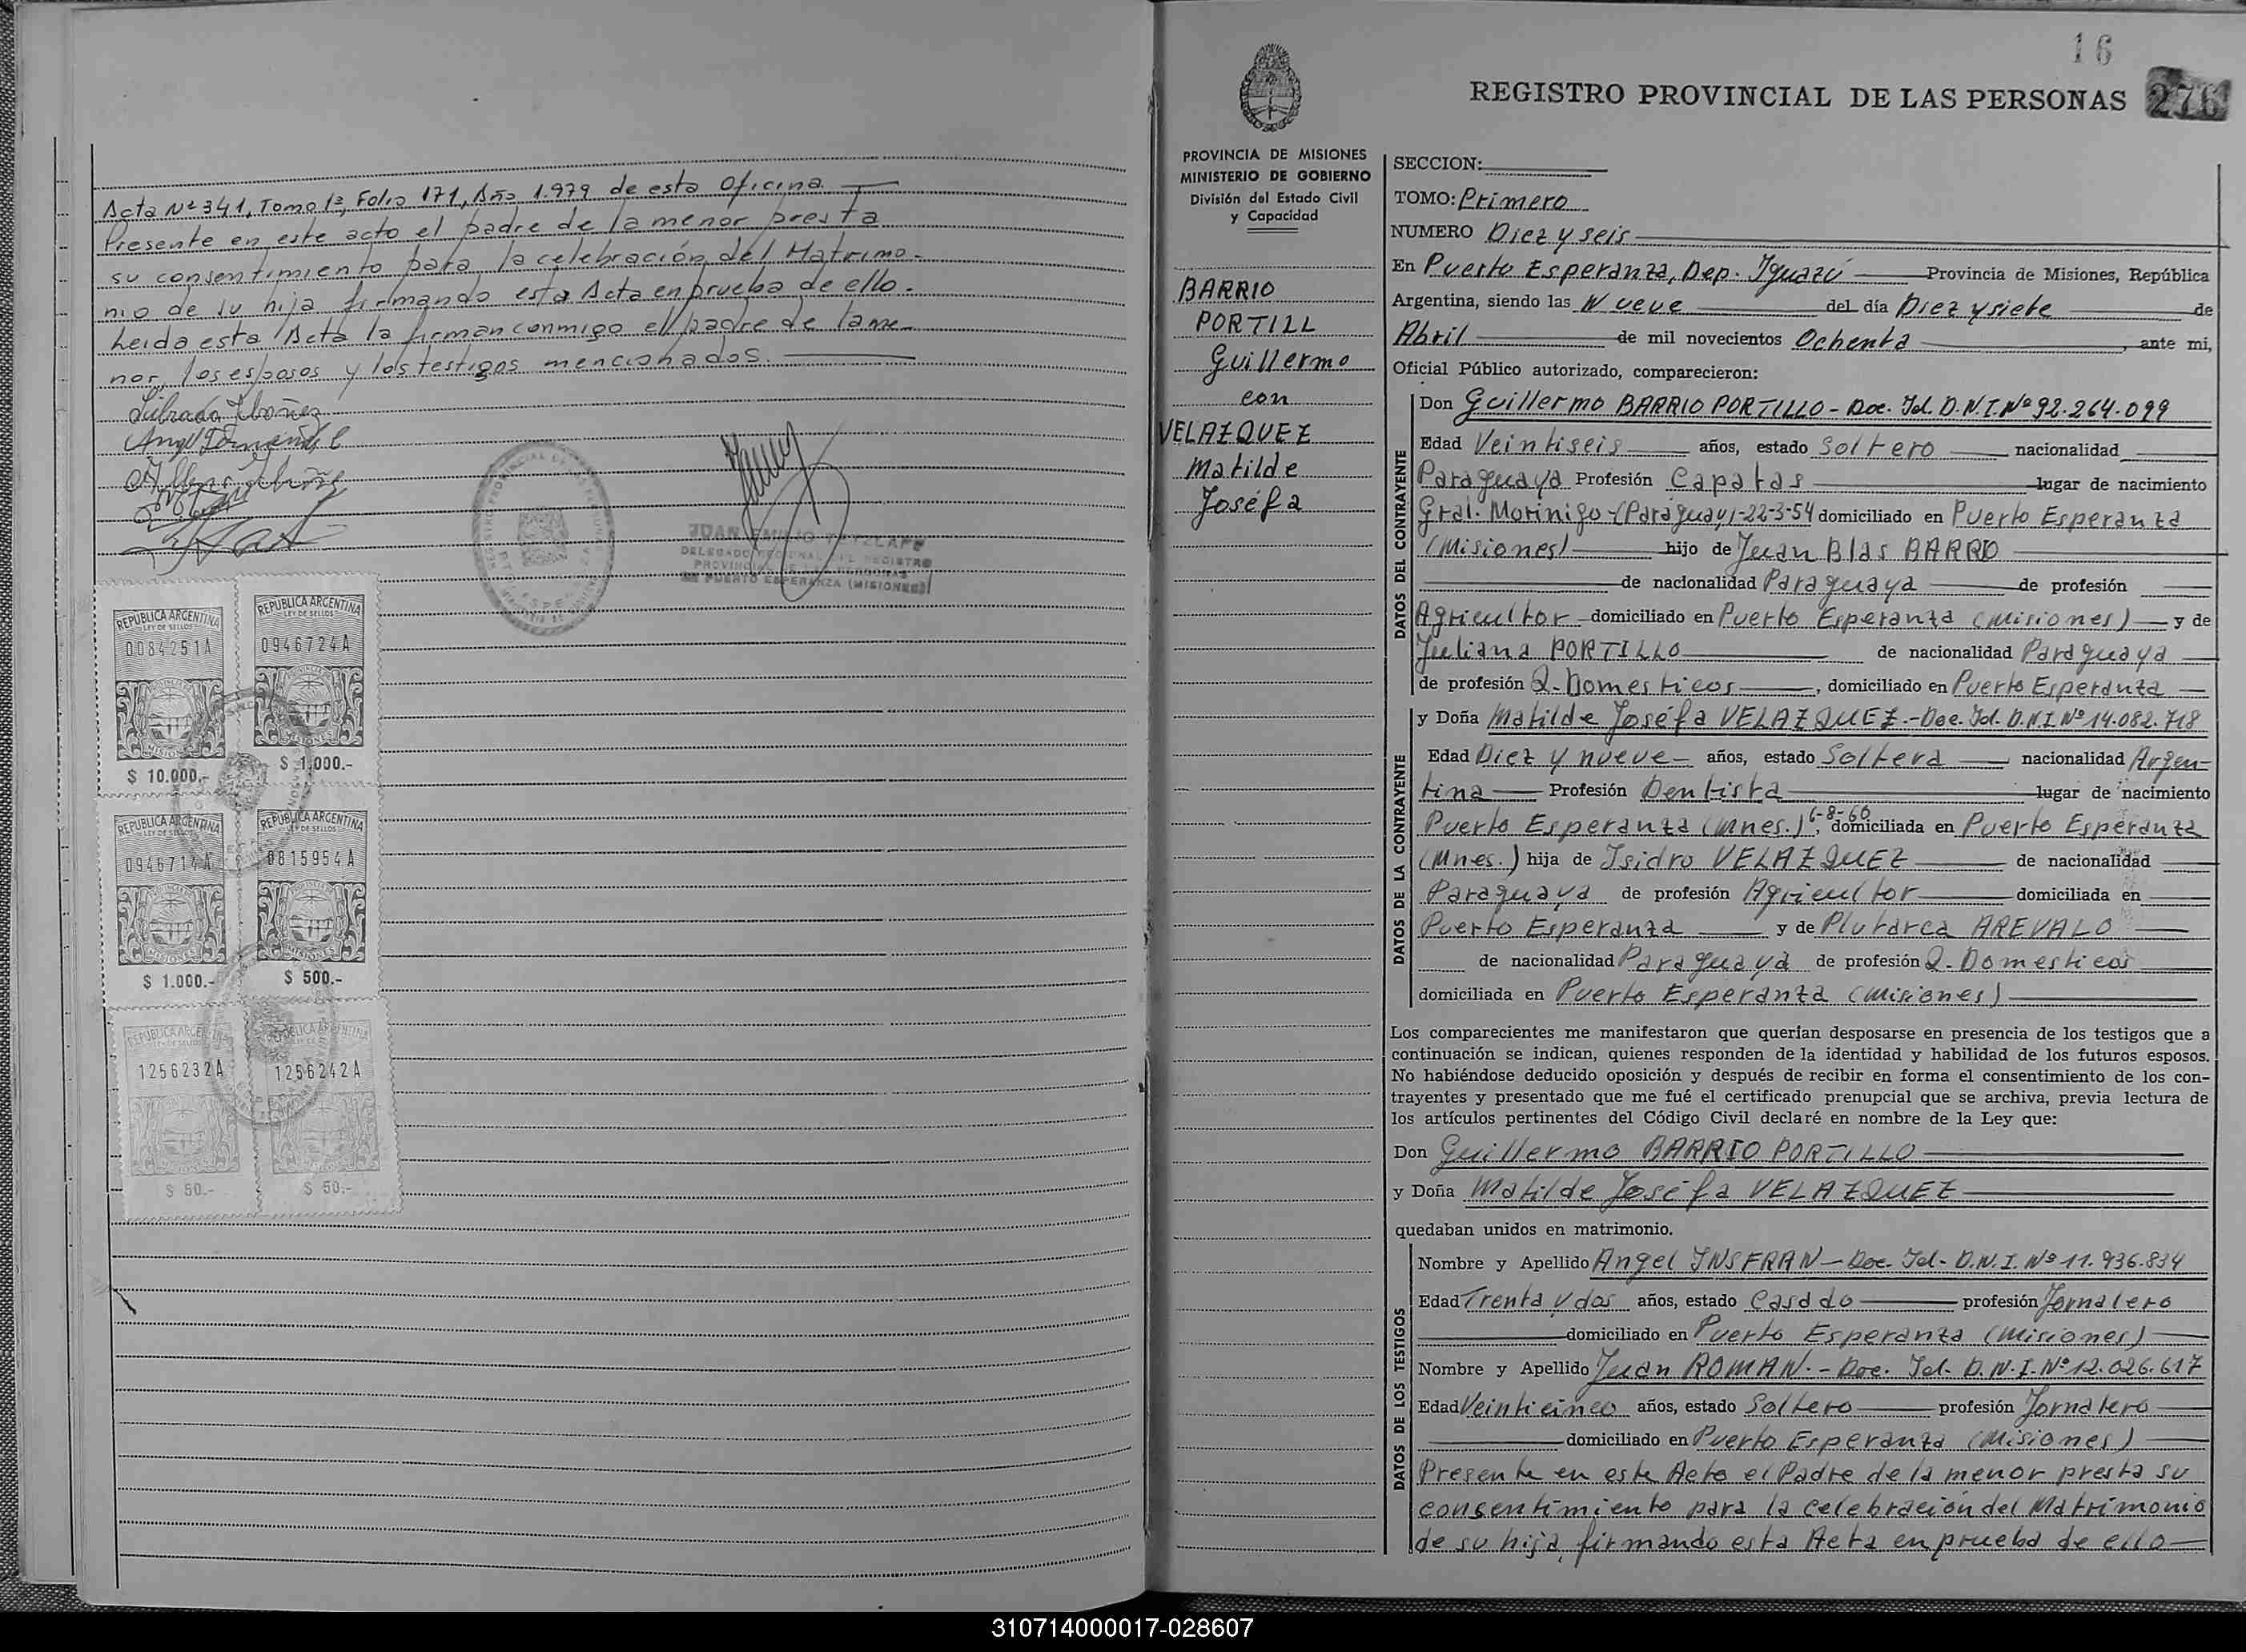 Acta Nº 341, Tomo 1º, Folio 171, Año 1.979 de esta Oficina.
Presente en este acto el padre de la menor presta
su consentimiento para la celebración del Matrimo-
nio de su hija firmando esta Acta en prueba de ello.
Leida esta Acta la firman conmigo el padre de la me-
nor, los esposos y los testigos mencionados.
REPUBLICA ARGENTINA
LEY DE SELLOS
0084251A
MISIONES
$ 10.000,-
REPUBLICA ARGENTINA
LEY DE SELLOS
0946724A
MISIONES
$ 1.000.-
REPUBLICA ARGENTINA
LEY DE SELLOS
0946714A
$ 1.000.-
REPUBLICA ARGENTINA
LEY DE SELLOS
0815954A
MISIONES
$ 500.-
REPUBLICA ARGENTINA
LEY DE SELLOS
1256232A
$ 50.-
REPUBLICA ARGENTINA
1256242A
$ 50.-
JUAN EMILIO
DELEGADO REGIONAL DEL REGISTRO
PROVINCIAL DE LAS PERSONAS
DE PUERTO ESPERANZA (MISIONES)
16
REGISTRO PROVINCIAL DE LAS PERSONAS 276
PROVINCIA DE MISIONES
MINISTERIO DE GOBIERNO
División del Estado Civil
y Capacidad
BARRIO
PORTILL
Guillermo
con
VELAZQUEZ
Matilde
Joséfa
SECCION:
TOMO: Primero
NUMERO Diez y seis
En Puerto Esperanza, Dep. Iguazú Provincia de Misiones, República
Argentina, siendo las Nueve del día Diez y siete de
Abril de mil novecientos Ochenta, ante mi,
Oficial Público autorizado, comparecieron:
DATOS DEL CONTRAYENTE
Don Guillermo BARRIO PORTILLO - Doc. Id. D.N.I. Nº 92.264.099
Edad Veintiseis años, estado Soltero nacionalidad
Paraguaya Profesión Capatas lugar de nacimiento
Gral. Morinigo-(Paraguay)-22-3-54 domiciliado en Puerto Esperanza
(Misiones) hijo de Juan Blas BARRO
de nacionalidad Paraguaya de profesión
Agricultor domiciliado en Puerto Esperanza (Misiones) y de
Juliana PORTILLO de nacionalidad Paraguaya
de profesión Q. Domesticos, domiciliado en Puerto Esperanza
DATOS DE LA CONTRAYENTE
y Doña Matilde Joséfa VELAZQUEZ.-Doc. Id. D.N.I. Nº 14.082.718
Edad Diez y nueve años, estado Soltera nacionalidad Argen-
tina Profesión Dentista lugar de nacimiento
Puerto Esperanza (Mnes.) 6-8-60, domiciliada en Puerto Esperanza
(Mnes.) hija de Isidro VELAZQUEZ de nacionalidad
Paraguaya de profesión Agricultor domiciliada en
Puerto Esperanza y de Plutarca AREVALO
de nacionalidad Paraguaya de profesión Q. Domesticos
domiciliada en Puerto Esperanza (Misiones)
Los comparecientes me manifestaron que querían desposarse en presencia de los testigos que a
continuación se indican, quienes responden de la identidad y habilidad de los futuros esposos.
No habiéndose deducido oposición y después de recibir en forma el consentimiento de los con-
trayentes y presentado que me fué el certificado prenupcial que se archiva, previa lectura de
los artículos pertinentes del Código Civil declaré en nombre de la Ley que:
Don Guillermo BARRIO PORTILLO
y Doña Matilde Joséfa VELAZQUEZ
quedaban unidos en matrimonio.
DATOS DE LOS TESTIGOS
Nombre y Apellido Angel INSFRAN - Doc. Id. D.N.I. Nº 11.936.834
Edad Trenta y dos años, estado Casado profesión Jornalero
domiciliado en Puerto Esperanza (Misiones)
Nombre y Apellido Juan ROMAN.- Doc. Id. D.N.I. Nº 12.026.617
Edad Veinticinco años, estado Soltero profesión Jornalero
domiciliado en Puerto Esperanza (Misiones)
Presente en este Acto el Padre de la menor presta su
consentimiento para la celebración del Matrimonio
de su hija, firmando esta Acta en prueba de ello
310714000017-028607